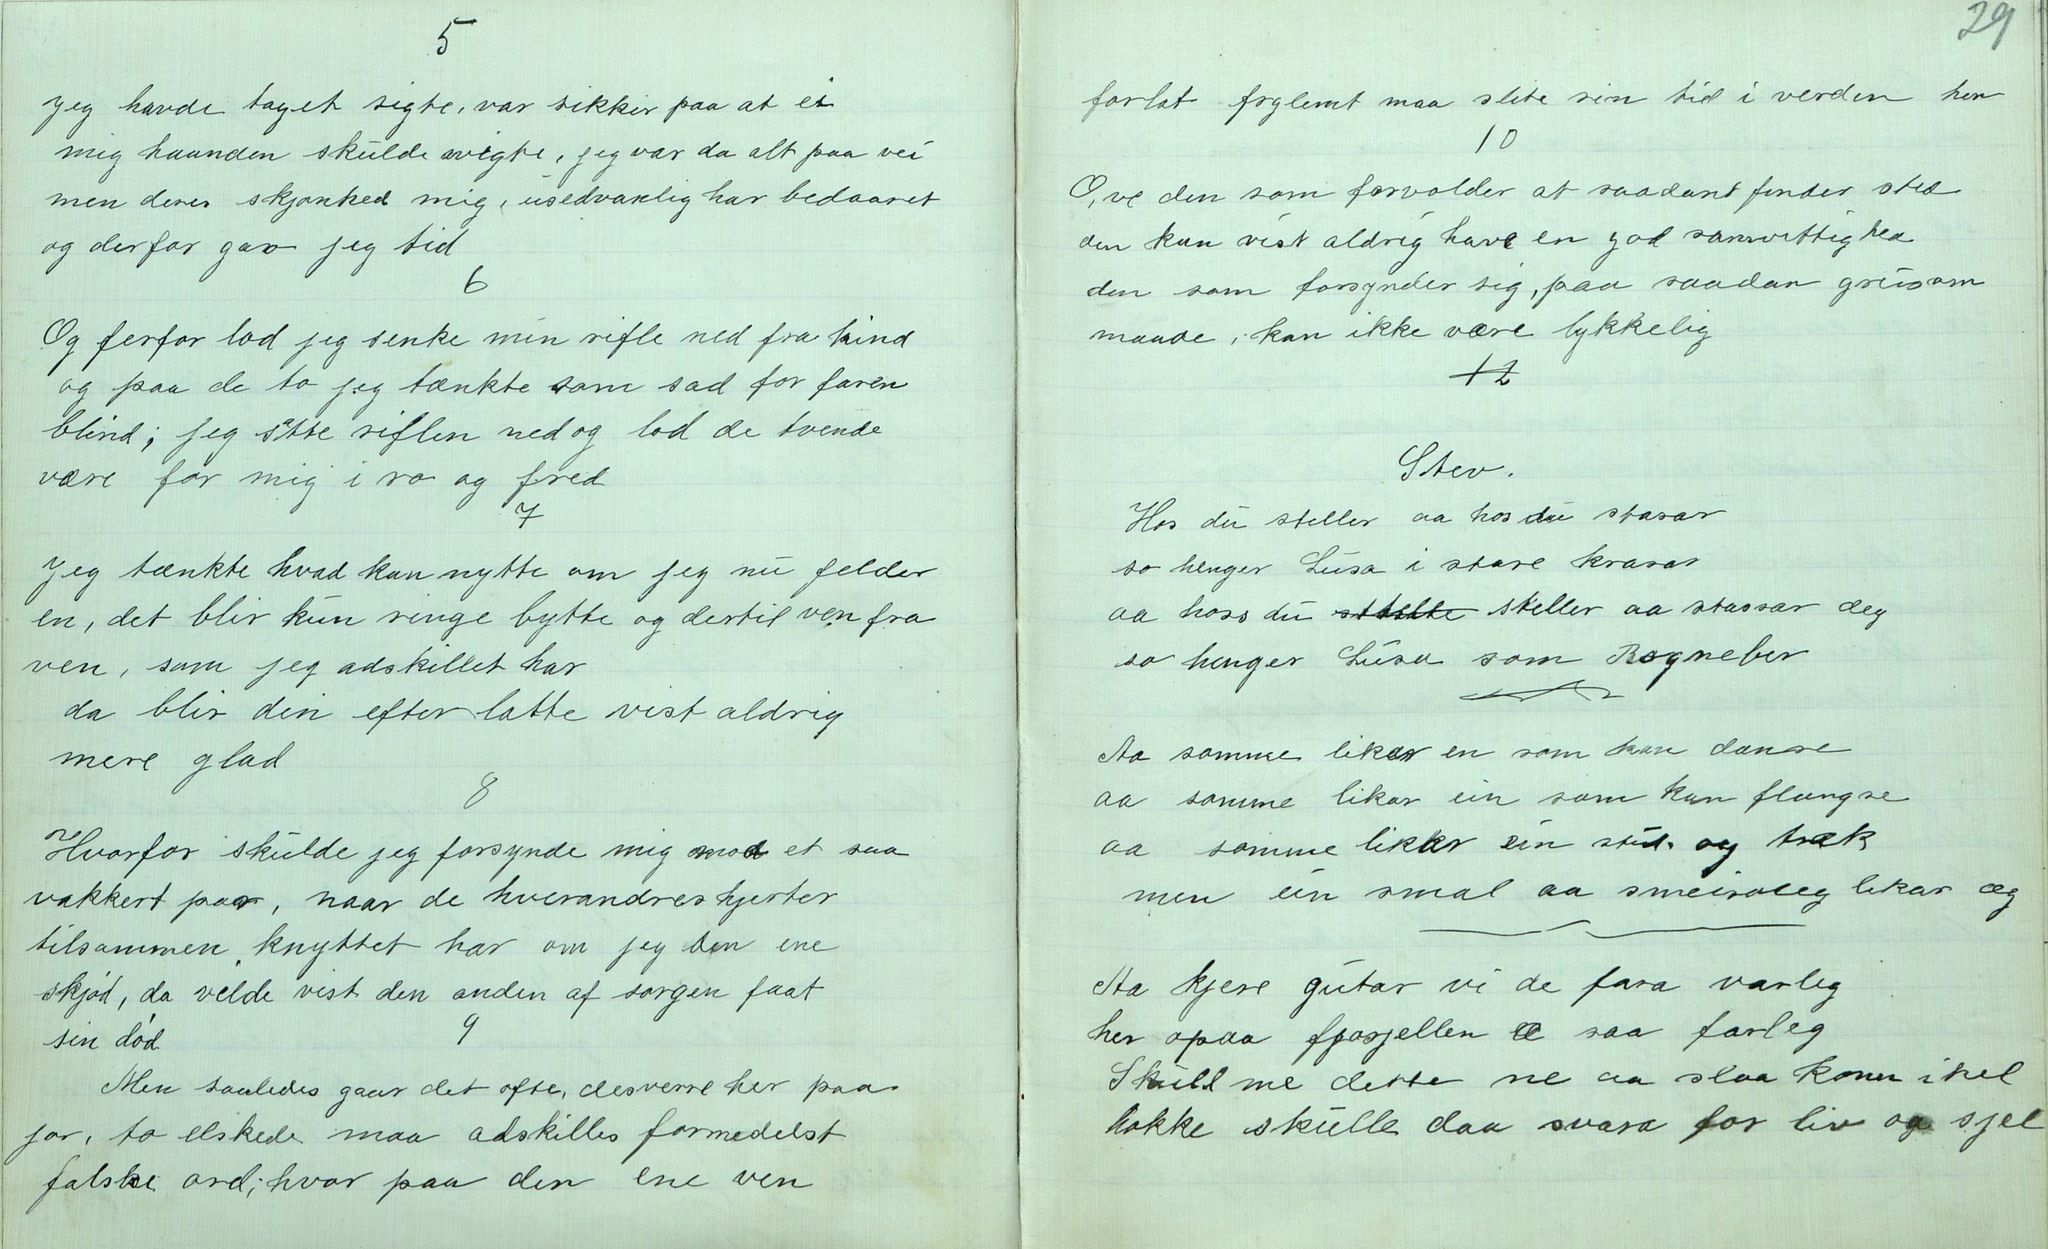 5
jeg havde taget sigte, var sikker paa at ei
mig haanden skulde svigte, jeg var da alt paa vei
men deres skjønhed mig, usedvanlig har bedaaret
og derfor gav jeg tid
6
Og ferfor lod jeg senke min rifle ned fra kind
og paa de to jeg tænkte som sad for faren
blind; jeg satte riflen ned og lod de tvende
være for mig i ro og fred
7
Jeg tænkte hvad kan nytte om jeg nu felder
en, det blir kun ringe bytte og dertil ven fra
ven, som jeg adskillet har
da blir din efter latte vist aldrig
mere glad
8
Hvorfor skulde jeg forsynde mig mod et saa
vakkert par, naar de hverandres hjerter
tilsammen knyttet har om jeg den ene
skjød, da velde vist den anden af sorgen faat
sin død
9
Men saaledes gaar det ofte, desverre her paa
jor, to elskede maa adskilles formedelst
falske ord; hvor paa den ene ven
29
forlat frglemt maa slite sin tid i verden hen
10
O, ve den som forvolder at saadant finder sted
den kan vist aldrig have en god samvittighed
den som forsynder sig, paa saadan grusom
maade, kan ikke være lykkelig
12
Stev.
Hos du steller aa hos du stasar
so henger Lusa i store krasar
aa hoss du stellte steller aa stassar deg
so henger Lusa som Rogneber
Aa somme likar en som kan danse
aa somme likar ein som kan flangse
aa somme likar ein stud og træk
men ein smal aa smeisoleg likar æg
Aa kjere gutar vi de fara varleg
her opaa fjosjellen æ saa farleg
Skuld me dette ne aa slaa konn ikel
hokke skulle daa svara for liv og sjel